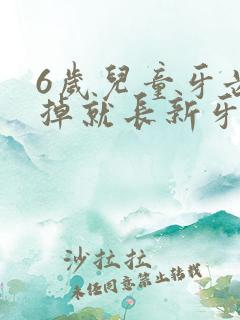 6歲兒童牙
掉就長新牙
沙拉拉
未经同意禁止转载